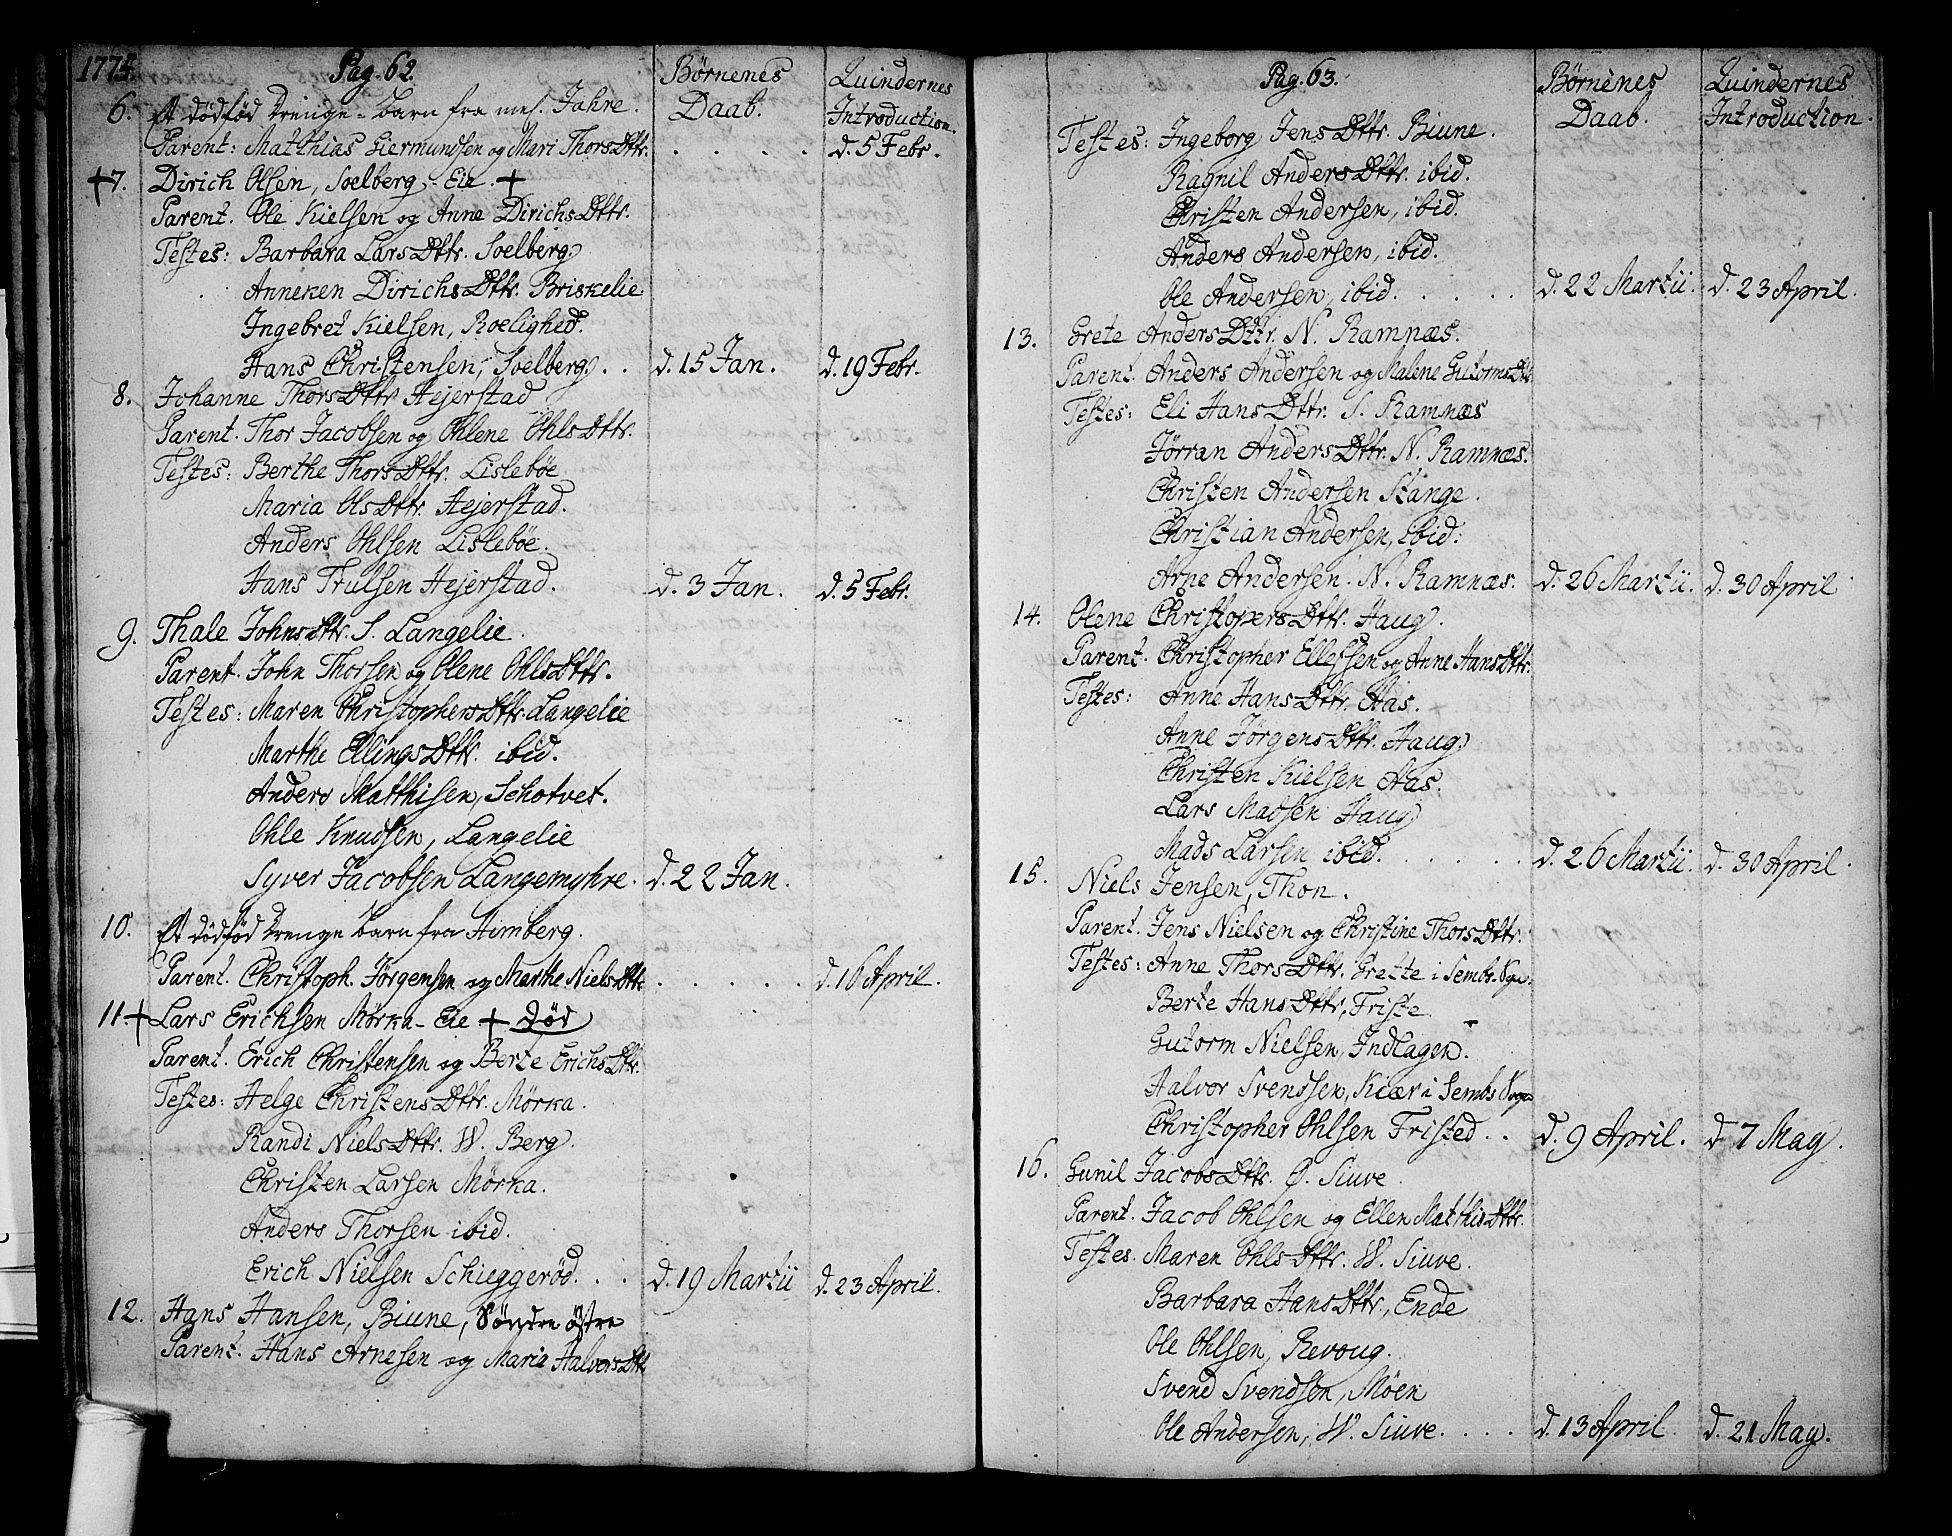 1775. Pag. 62. Børnenes Daab. Quindernes Introduction.
6. Et dødfød drenge-barn fra mel. Jahre.
Parent: Matthias Giermundsen og Mari Thors Dttr. . . . . d. 5 Febr.
+7. Dirich Olsen, Solberg-Eie. +
Parent. Ole Kielsen og Anne Dirichs Dttr.
Testes: Barbara Lars Dttr. Soelberg
Anneken Dirichs Dttr. Briskelie
Ingebret Kielsen, Roelighed.
Hans Christensen, Soelberg. . d. 15 Jan. d. 19 Febr.
8. Johanne Thors Dttr Hejerstad
Parent. Thor Jacobsen og Ohlene Ohls Dttr.
Testes: Berthe Thors Dttr. Lislebøe
Maria Ols Dttr. Hejerstad.
Anders Ohlsen Lislebøe.
Hans Trulsen Hejerstad. d. 3 Jan. d. 5 Febr.
9. Thale Johns Dttr. S. Langelie.
Parent. John Thorsen og Olene Ohls Dttr.
Testes: Maren Christophers Dttr. Langelie
Marthe Ellings Dttr. ibid.
Anders Matthisen, Schotvet.
Ohle Knudsen, Langelie
Syver Jacobsen Langemyhre. d. 22 Jan.
10. Et dødfød drenge barn fra Himberg.
Parent. Christoph. Jørgensen og Marthe Niels Dttr. . . . . d. 16 April.
11. + Lars Erichsen Mørka-Eie + død
Parent. Erich Christensen og Berte Erichs Dttr.
Testes: Helge Christens Dttr. Mørka.
Randi Niels Dttr. W. Berg.
Christen Larsen Mørka.
Anders Thorsen ibid.
Erich Nielsen Schieggerød. . . d. 19 Martii d. 23 April.
12. Hans Hansen, Biune, Søndre østre
Parent. Hans Arnesen og Maria Halvors Dttr.
Pag. 63. Børnenes Daab. Quindernes Introduction.
Testes: Ingeborg Jens Dttr. Biune.
Ragnil Anders Dttr. ibid.
Christen Andersen, ibid.
Anders Andersen, ibid.
Ole Andersen, ibid. . . . . d. 22 Martii. d. 23 April.
13. Grete Anders Dttr. N. Ramnæs.
Parent. Anders Andersen og Malene Gutorms Dttr.
Testes: Eli Hans Dttr. S. Ramnæs
Jørran Anders Dttr. N. Ramnæs.
Christen Andersen Stange.
Christian Andersen, ibid:
Arne Andersen. N. Ramnæs. d. 26 Martii. d. 30 April
14. Olene Christopers Dttr. Haug.
Parent. Christopher Ellefsen og Anne Hans Dttr.
Testes: Anne Hans Dttr. Aas.
Anne Jørgens Dttr. Haug
Christen Kielsen Aas.
Lars Madsen Haug
Mads Larsen ibid. . . . . d. 26 Martii. d. 30 April.
15. Niels Jensen, Thon.
Parent. Jens Nielsen og Christine Thors Dttr.
Testes: Anne Thors Dttr. Grette i Sembs Sogn.
Berte Hans Dttr, Friste
Gutorm Nielsen, Indlagen.
Halvor Svensen, Kiær i Sembs Sogn
Christopher Ohlsen Fristed. . d. 9 April. d. 7 May.
16. Gunil Jacobs Dttr. Ø. Siuve.
Parent. Jacob Ohlsen og Ellen Matthis Dttr.
Testes. Maren Ohls Dttr. W. Siuve.
Barbara Hans Dttr., Ende
Ole Ohlsen, Revoug.
Svend Svendsen, Møen
Ole Andersen, W. Siuve. . . . d. 13 April. d. 21 May.